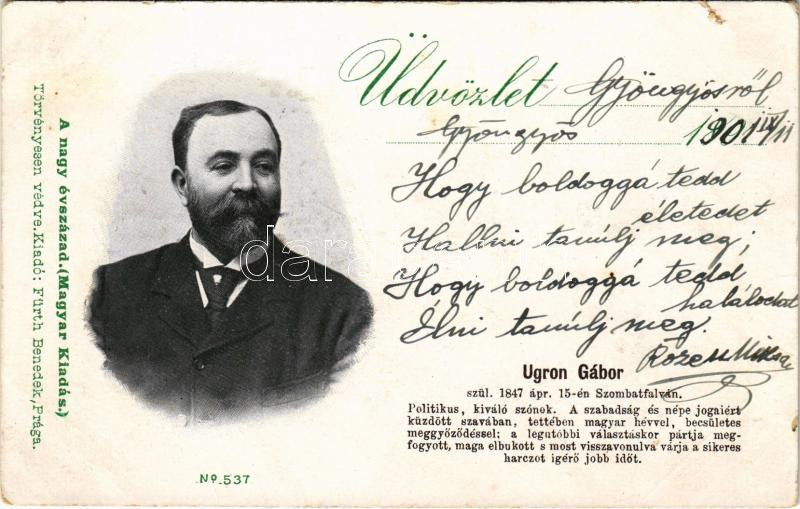 Üdvözlet Gyöngyösről
Gyöngyös 1901 IX/11
Hogy boldoggá tedd
életedet
Hallni tanúlj meg;
Hogy boldoggá tedd
halálodat
Élni tanúlj meg.
Ugron Gábor
szül. 1847 ápr. 15-én Szombatfalván.
Politikus, kiváló szónok. A szabadság és népe jogaiért
küzdött szavában, tettében magyar hévvel, becsületes
meggyőződéssel; a legutóbbi választáskor pártja meg-
fogyott, maga elbukott s most visszavonulva várja a sikeres
harczot igérő jobb időt.
A nagy évszázad.(Magyar Kiadás.)
Törvényesen védve.Kiadó: Fürth Benedek,Prága.
No.537
darabanth